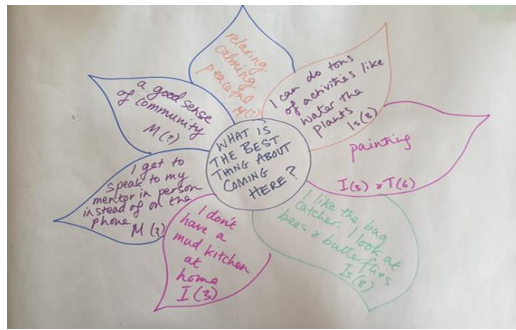 WHAT IS
THE BEST
THING ABOUT
COMING
HERE?
relaxing
calming
peaceful
M(?)
I can do tons
of activities like
water the
plants
Is(8)
painting
I(3) & T(6)
I like the bug
catcher. I look at
bees & butterflies
Is(8)
I don't
have a
mud kitchen
at
home
I(3)
I get to
speak to my
mentor in person
instead of on the
phone
M(?)
a good sense
of community
M(?)